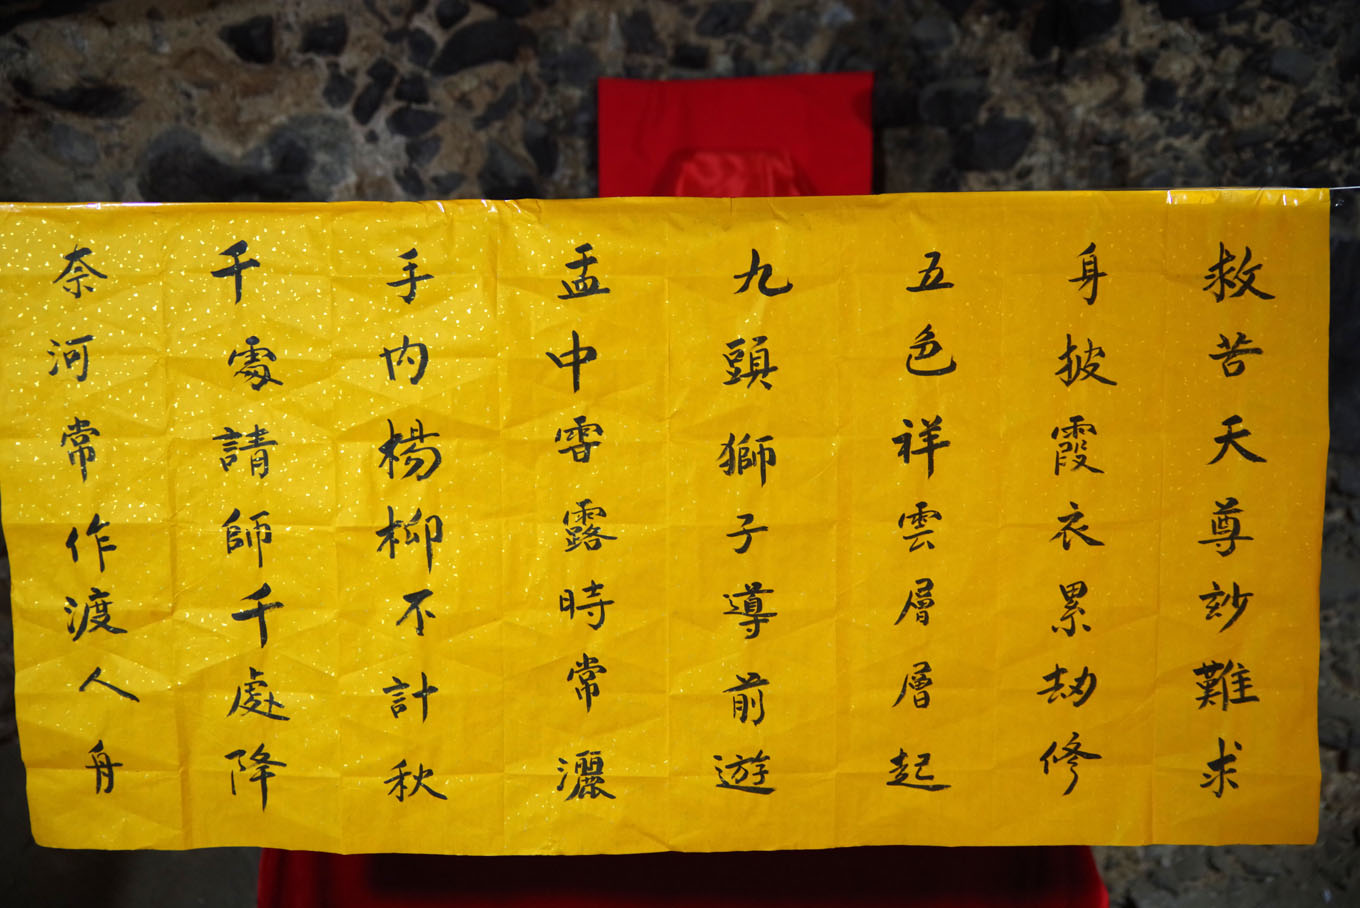 救苦天尊玅難求
身披霞衣累劫修
五色祥雲層層起
九頭獅子導前遊
盂中雪露時常灑
手內楊柳不計秋
千處請師千處降
奈河常作渡人舟